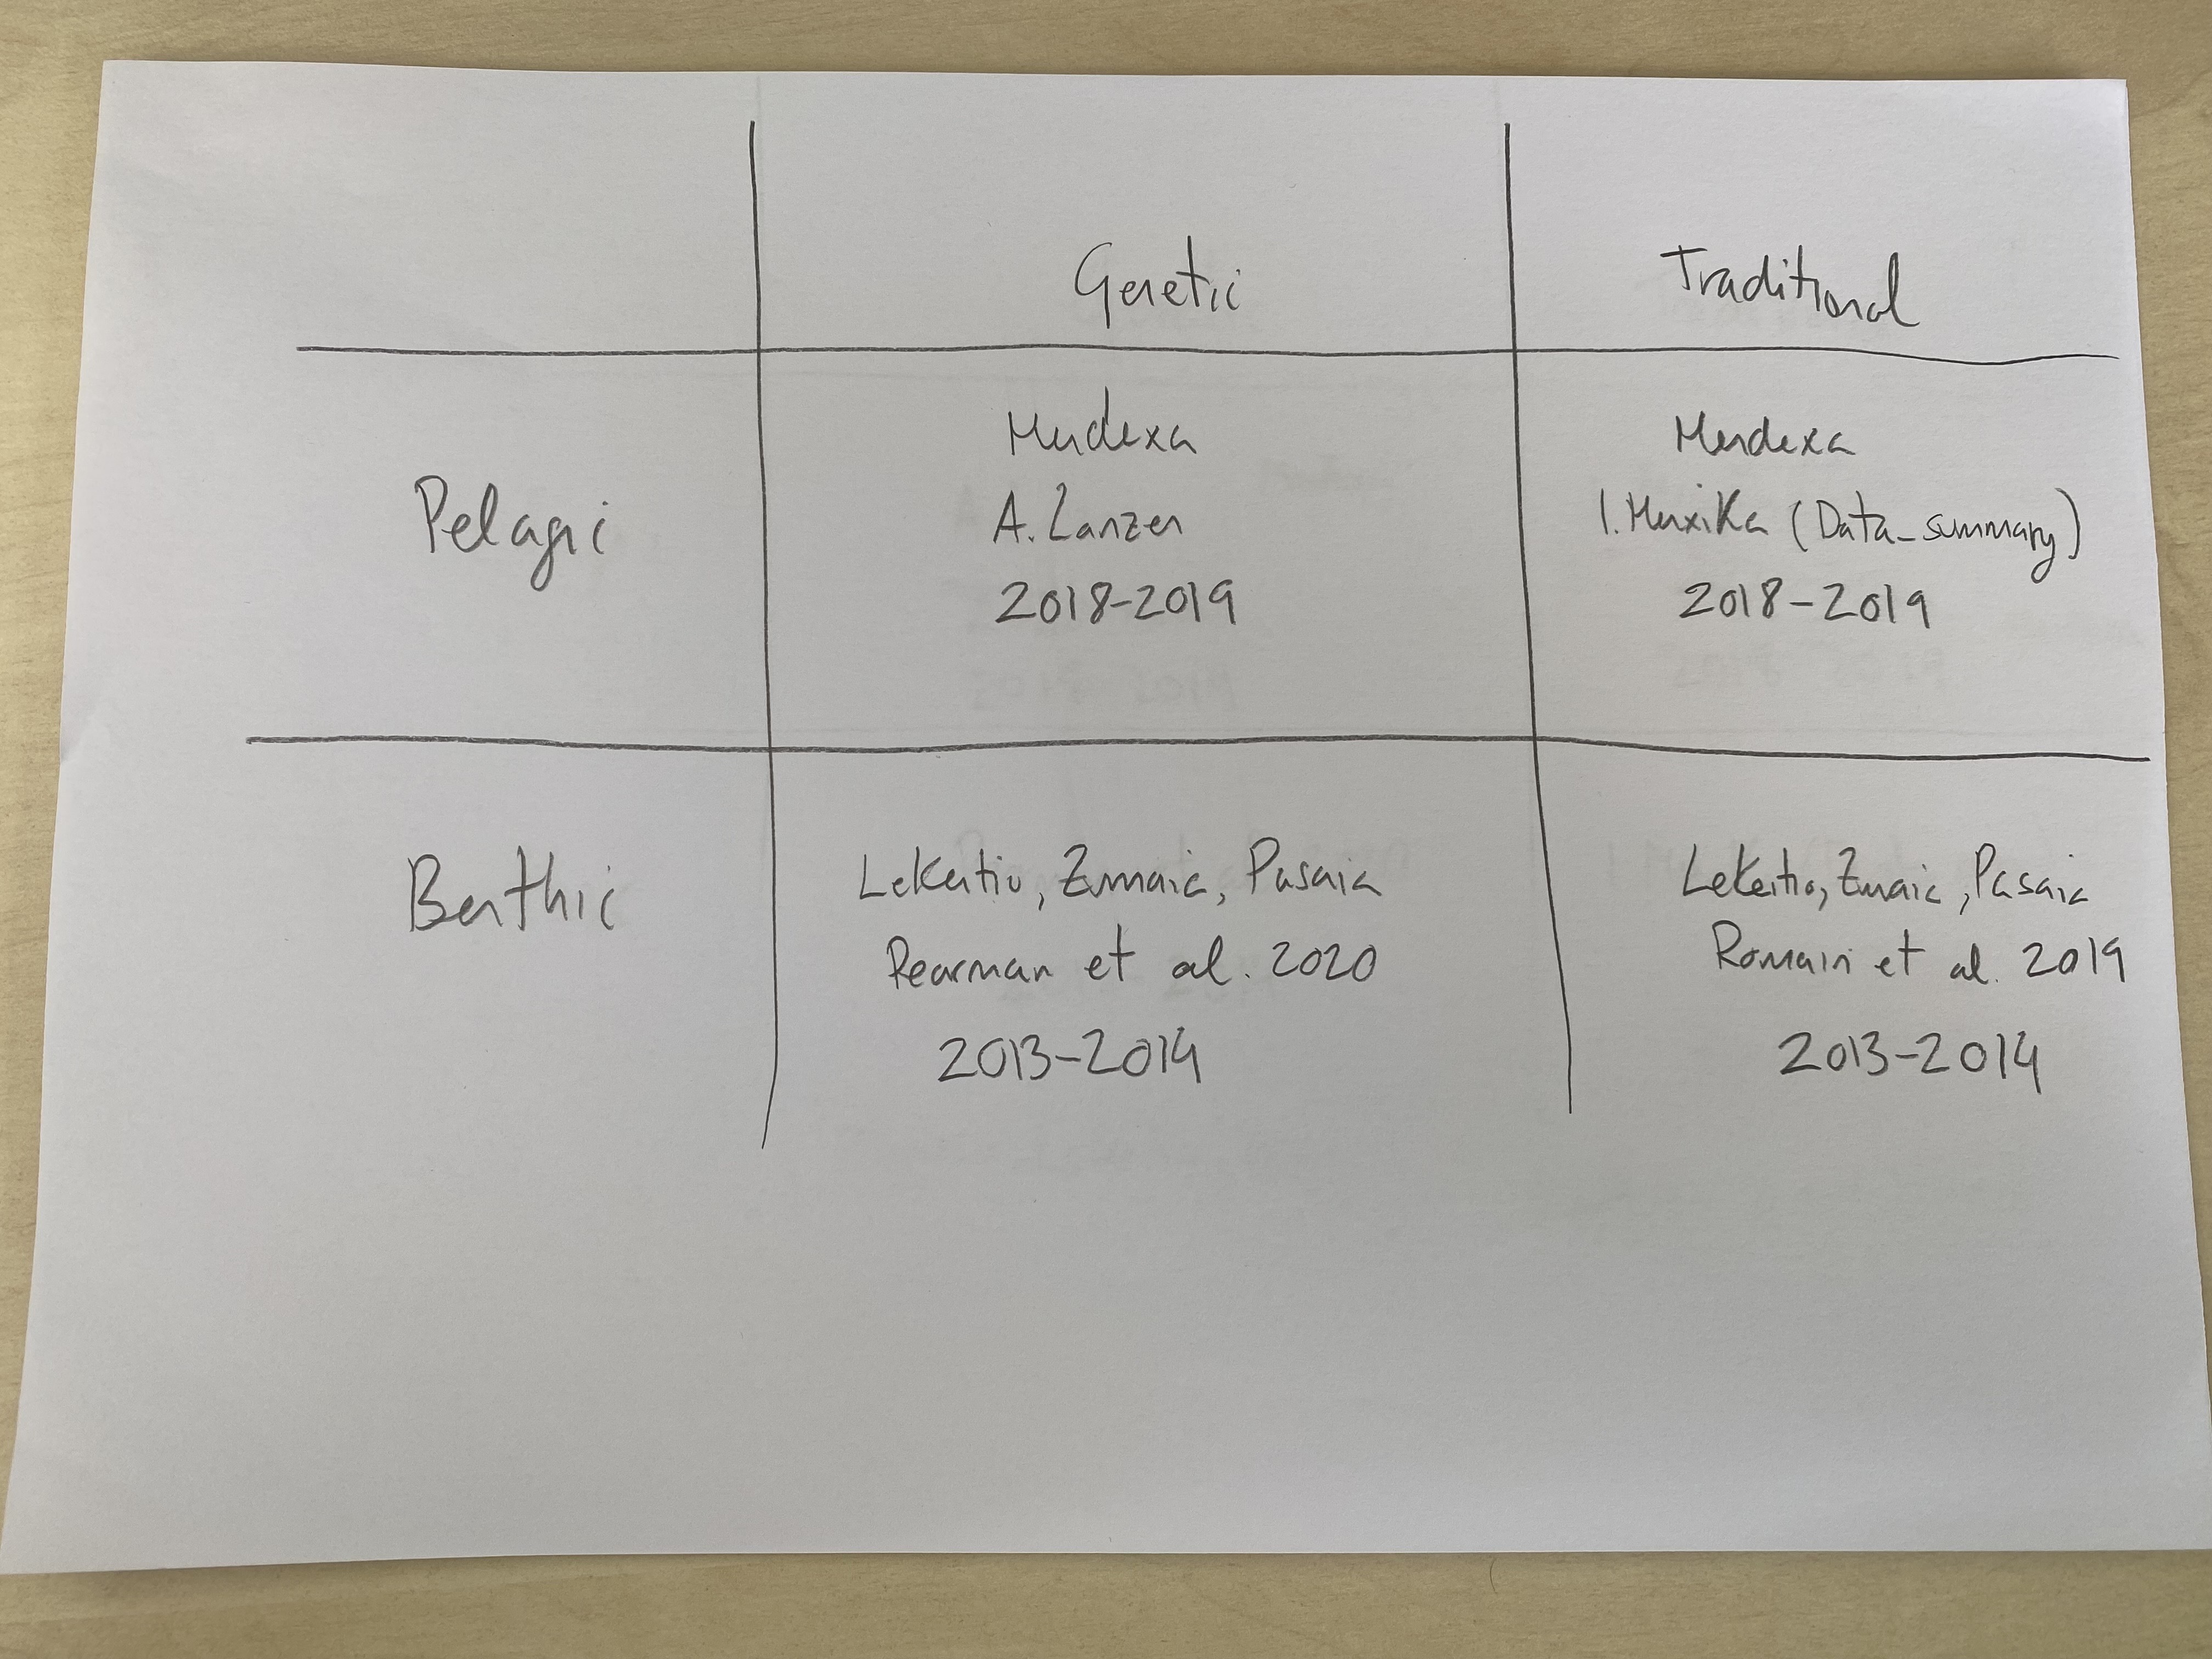 Genetic Traditional
Pelagic
Mendexa
A. Lanzen
2018-2019
Mendexa
I. Muxika (Data_summary)
2018-2019
Benthic
Lekeitio, Zumaia, Pasaia
Pearman et al. 2020
2013-2014
Lekeitio, Zumaia, Pasaia
Romain et al. 2019
2013-2014